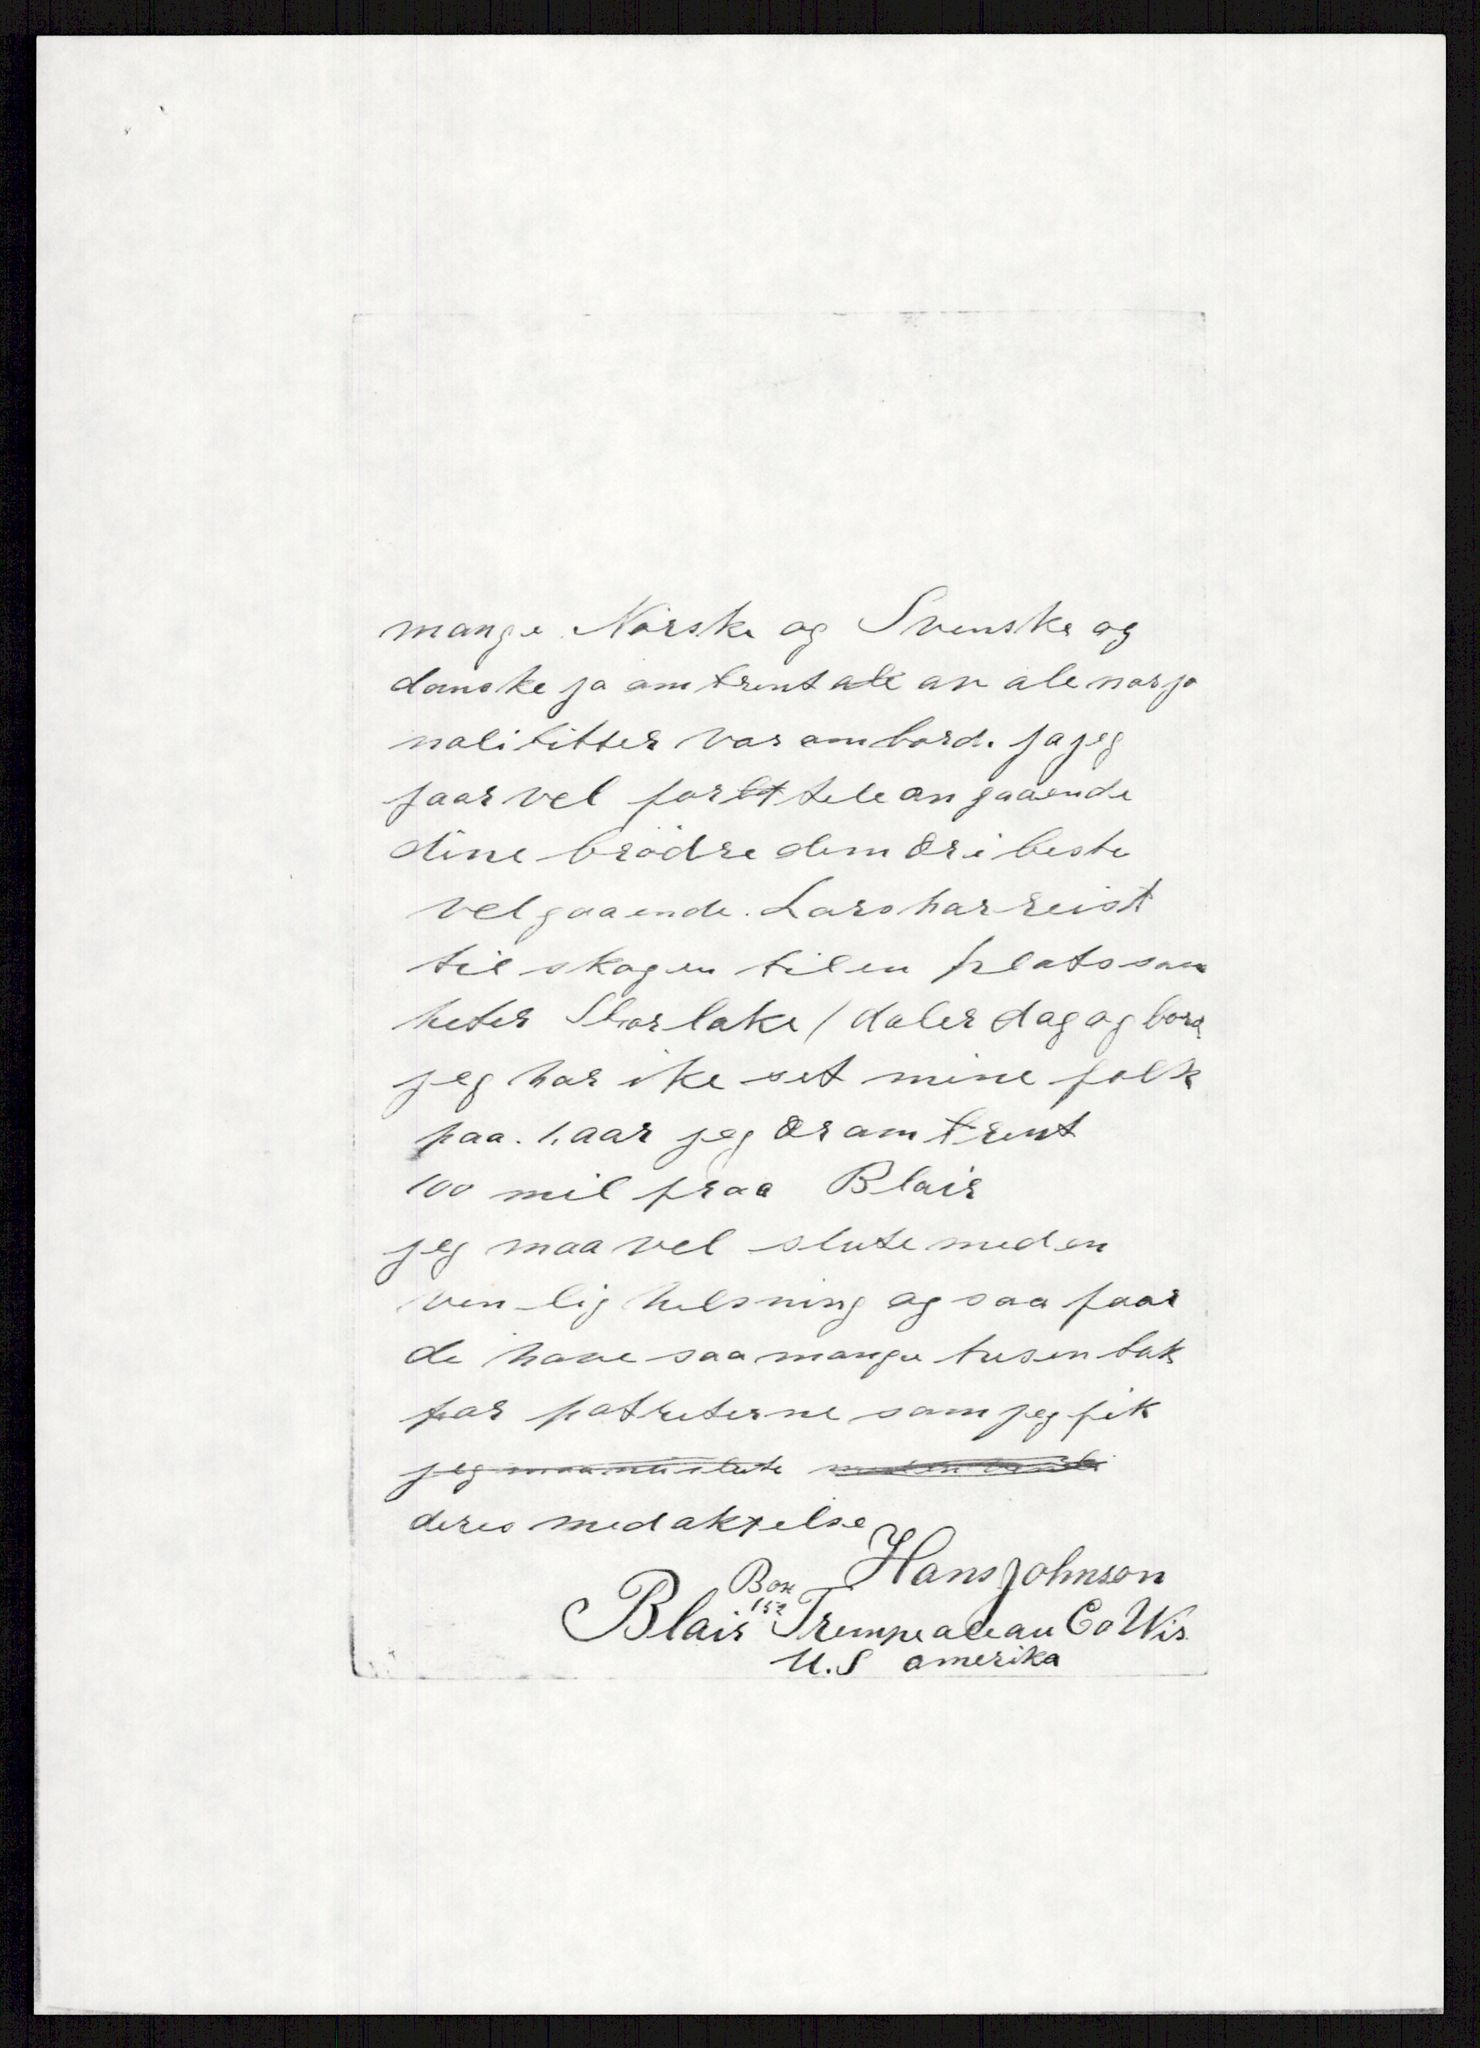 mange Norske og Svenske og
danske ja omtrent ale av ale nasjo
naliteter var ombord. ja jeg
faar vel fortele angaaende
dine brödre dem er i beste
velgaaende. Lars har reist
til skogen til en plats som
heter Starlake 1 daler dag og bord
jeg har ike set mine folk
paa. 1. aar jeg er omtrent
100 mil fraa Blair
jeg maa vel slute med en
venlig helsning og saa faar
de have saa mange tusen tak
for potreterne som jeg fik
jeg maa nu slute
deres med aktelse
Hans Johnson
Box 152
Blair Trempealeau Co Wis.
U.S amerika